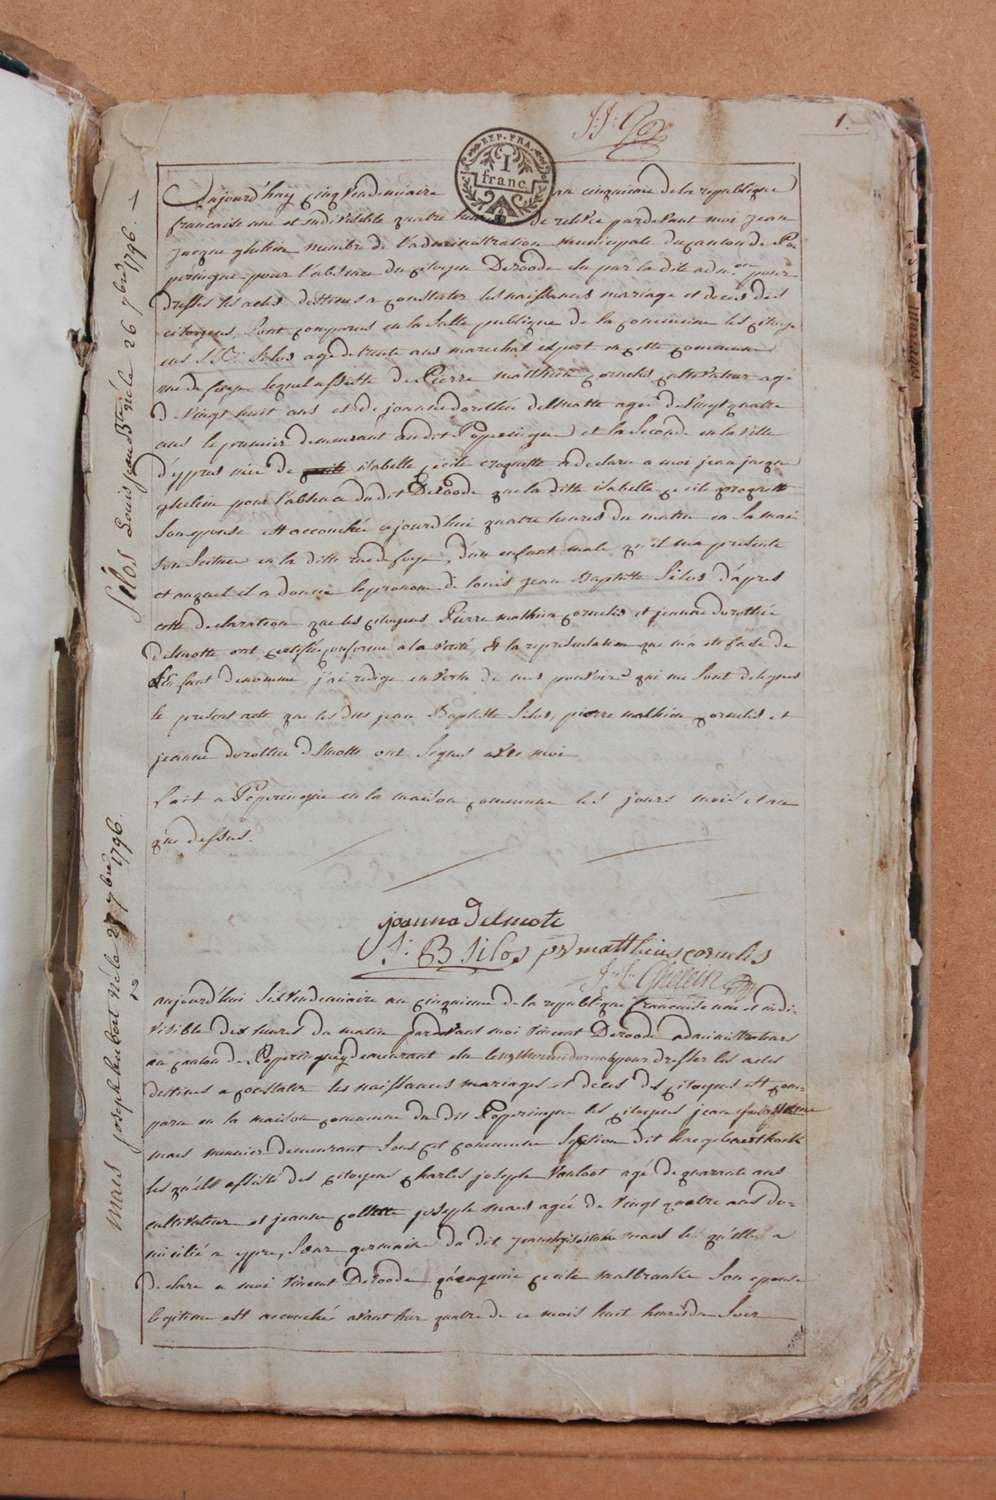 1.
J: J: G
REP. FRA.
1
franc.
1
Silos Louis jean Bte né le 26 7bre 1796.
Aujourd'huy cinq vendemiaire an cinquieme de la republique
francaise une et indivisible quatre heures de relvée pardevant moi jean
jacque ghelein membre de l'administration municipale du canton de Po
peringue pour l'absence du citoyen Deroode elu par la dite adm.on pour
dresser les actes destines a constater les naissances mariage et deces des
citoyens sont comparus en la salle publique de la commune les citoye
ens J: B: Silos age de trente ans marechal expert en cette commune
rue de furne lequel assisté de Pierre matthieu cornelis cultivateur agé
de vingt huit ans et de joanne dorothée delmotte agee de vingt quatre
ans le premier demeurant audit Popperingue et la seconde en la ville
d'ypres niece de isabelle cecile croquette a declare a moi jean jacque
ghelein pour l'absence dudit Deroode que la ditte isabelle cecile croquette
son epouse est accouchée aujourd'hui quatre heures du matin en sa mai
son scituee en la ditte rue de furne, d'un enfant male qu'il m'a presente
et auquel il a donné le prenom de louis jean Baptiste Silos d'apres
cette declaration que les citoyens Pierre mathieu cornelis et jeanne dorothée
delmotte ont certifié conforme a la verité, et la representation que m'a eté faite de
l'enfant denomme, j'ai redigé en vertu de mes pouvoirs qui me sont delegues
le present acte que les dits jean Baptiste Silos, pierre mathieu cornelis et
jeanne dorothee delmotte ont signes avec moi
fait a Popperingue en la maison commune les jours mois et an
que dessus.
joanna Delmote
J: B Silos pr mattheus cornelis
J: J: Ghelein
2
Maes joseph hubert né le 25 7bre 1796.
aujourd'hui six vendemiaire an cinquieme de la republique francaise une et indi
visible dix heures du matin pardevant moi vincent Deroode administrateur
au canton de Popperingue y demeurant elu pour dresser les actes
destines a constater les naissances mariages et deces des citoyens est com-
paru en la maison commune du dit Popperingue les citoyens jean
maes meunier demeurant sous cet commune section dit
les quels assisté des citoyens charles joseph Vanloot agé de quarante ans
cultivateur et jeanne collette joseph maes agée de vingt quatre ans do-
micilié a ypre, sœur germaine du dit jean maes le quelle a
declare a moi vincent Deroode qu'eugenie cecile malbranke son epouse
legitime est accouché avant hier quatre de ce mois huit heures du soir